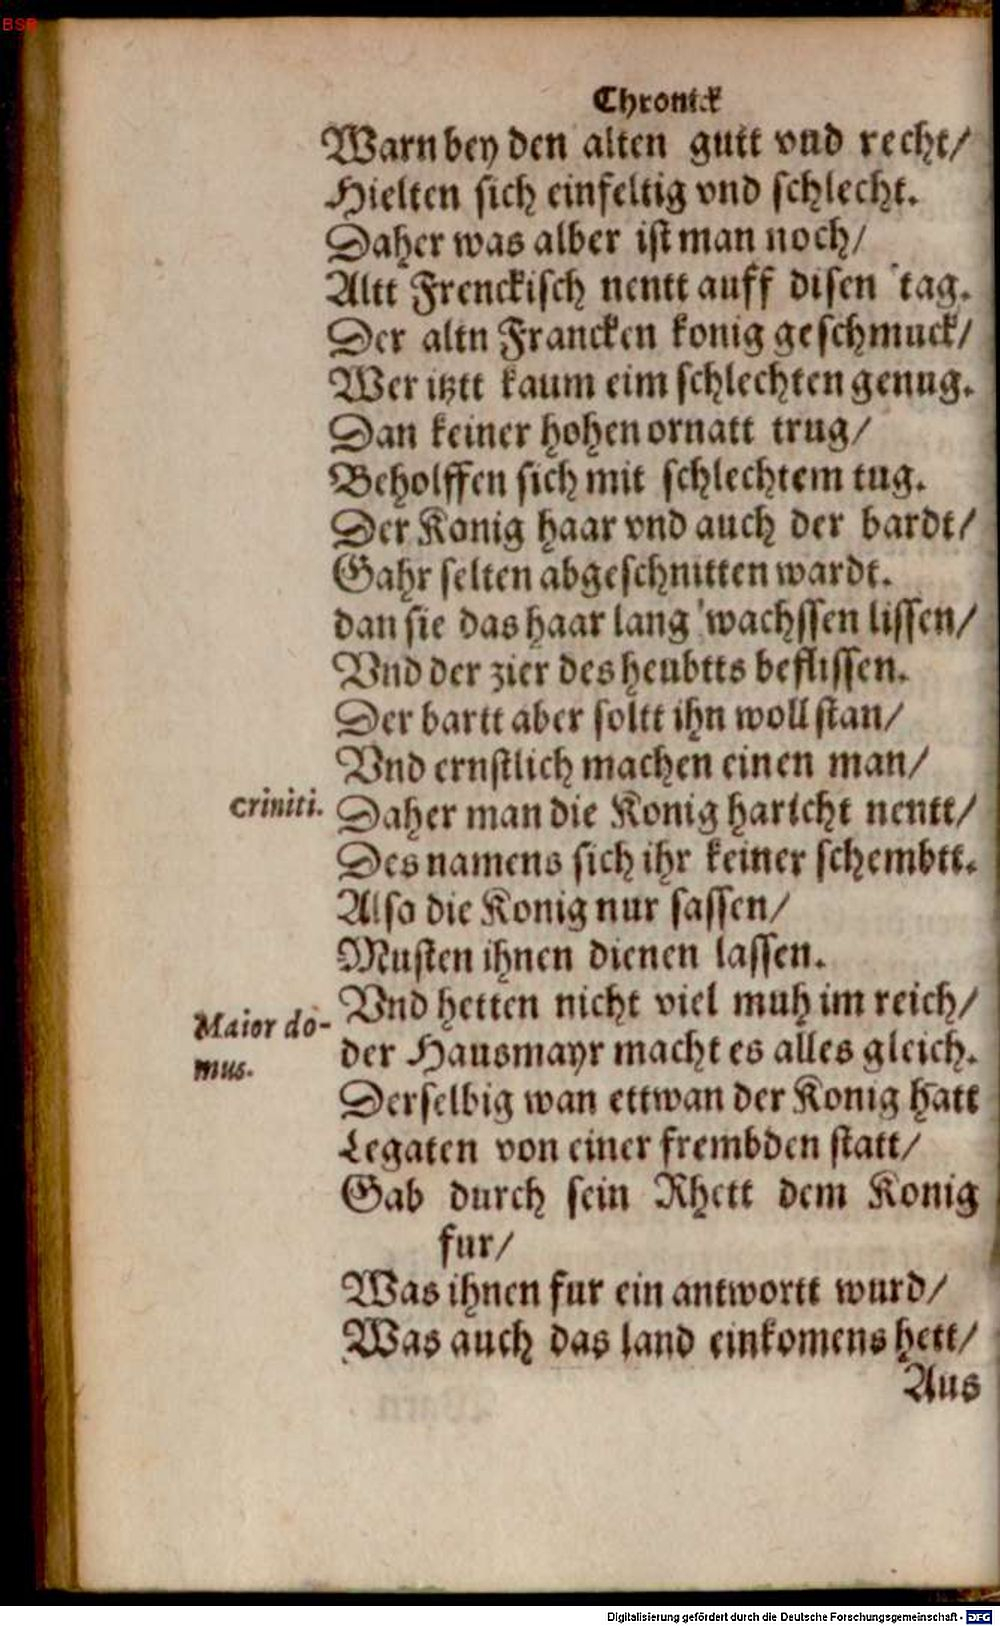 BSB
Chronick
Warn bey den alten gutt vnd recht/
Hielten sich einfeltig vnd schlecht.
Daher was alber ist man noch/
Altt Frenckisch nentt auff disen tag.
Der altn Francken konig geschmuck/
Wer itztt kaum eim schlechten genug.
Dan keiner hohen ornatt trug/
Beholffen sich mit schlechtem tug.
Der Konig haar vnd auch der bardt/
Gahr selten abgeschnitten wardt.
dan sie das haar lang wachssen lissen/
Vnd der zier des heubtts beflissen.
Der bartt aber soltt ihn woll stan/
Vnd ernstlich machen einen man/
criniti. Daher man die Konig haricht nentt/
Des namens sich ihr keiner schembtt.
Also die Konig nur sassen/
Musten ihnen dienen lassen.
Vnd hetten nicht viel muh im reich/
Maior do-
mus.
der Hausmayr macht es alles gleich.
Derselbig wan ettwan der Konig hatt
Legaten von einer frembden statt/
Gab durch sein Rhett dem Konig
fur/
Was ihnen fur ein antwortt wurd/
Was auch das land einkomens hett/
Aus
Digitalisierung gefördert durch die Deutsche Forschungsgemeinschaft - DFG